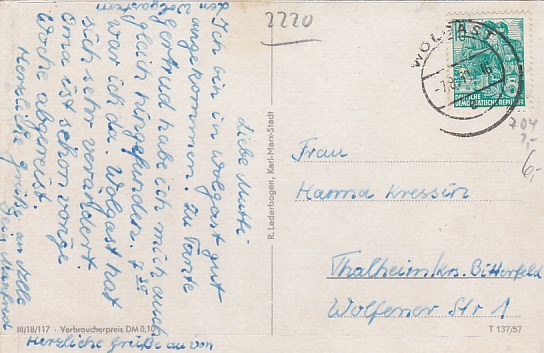 2220
Liebe Mutti
Ich bin in Wolgast gut
angekommen. Zu Tante
Gertrud hab ich mich auch
gleich hingefunden. 7 30
war ich da. Wolgast hat
sich sehr verändert.
Oma ist schon vorige
Woche abgereist.
Herzliche Grüße an alle
Dein Manfred
Herzliche Grüße an von
den Wolgastern
R. Lederbogen, Karl-Marx-Stadt
WOLGAST
DEUTSCHE
DEMOKRATISCHE REPUBLIK
704
6,-
Frau
Hanna Kressin
Thalheim krs. Bitterfeld
Wolfener Str 1
III/18/117 - Verbraucherpreis DM 0,10
T 137/57